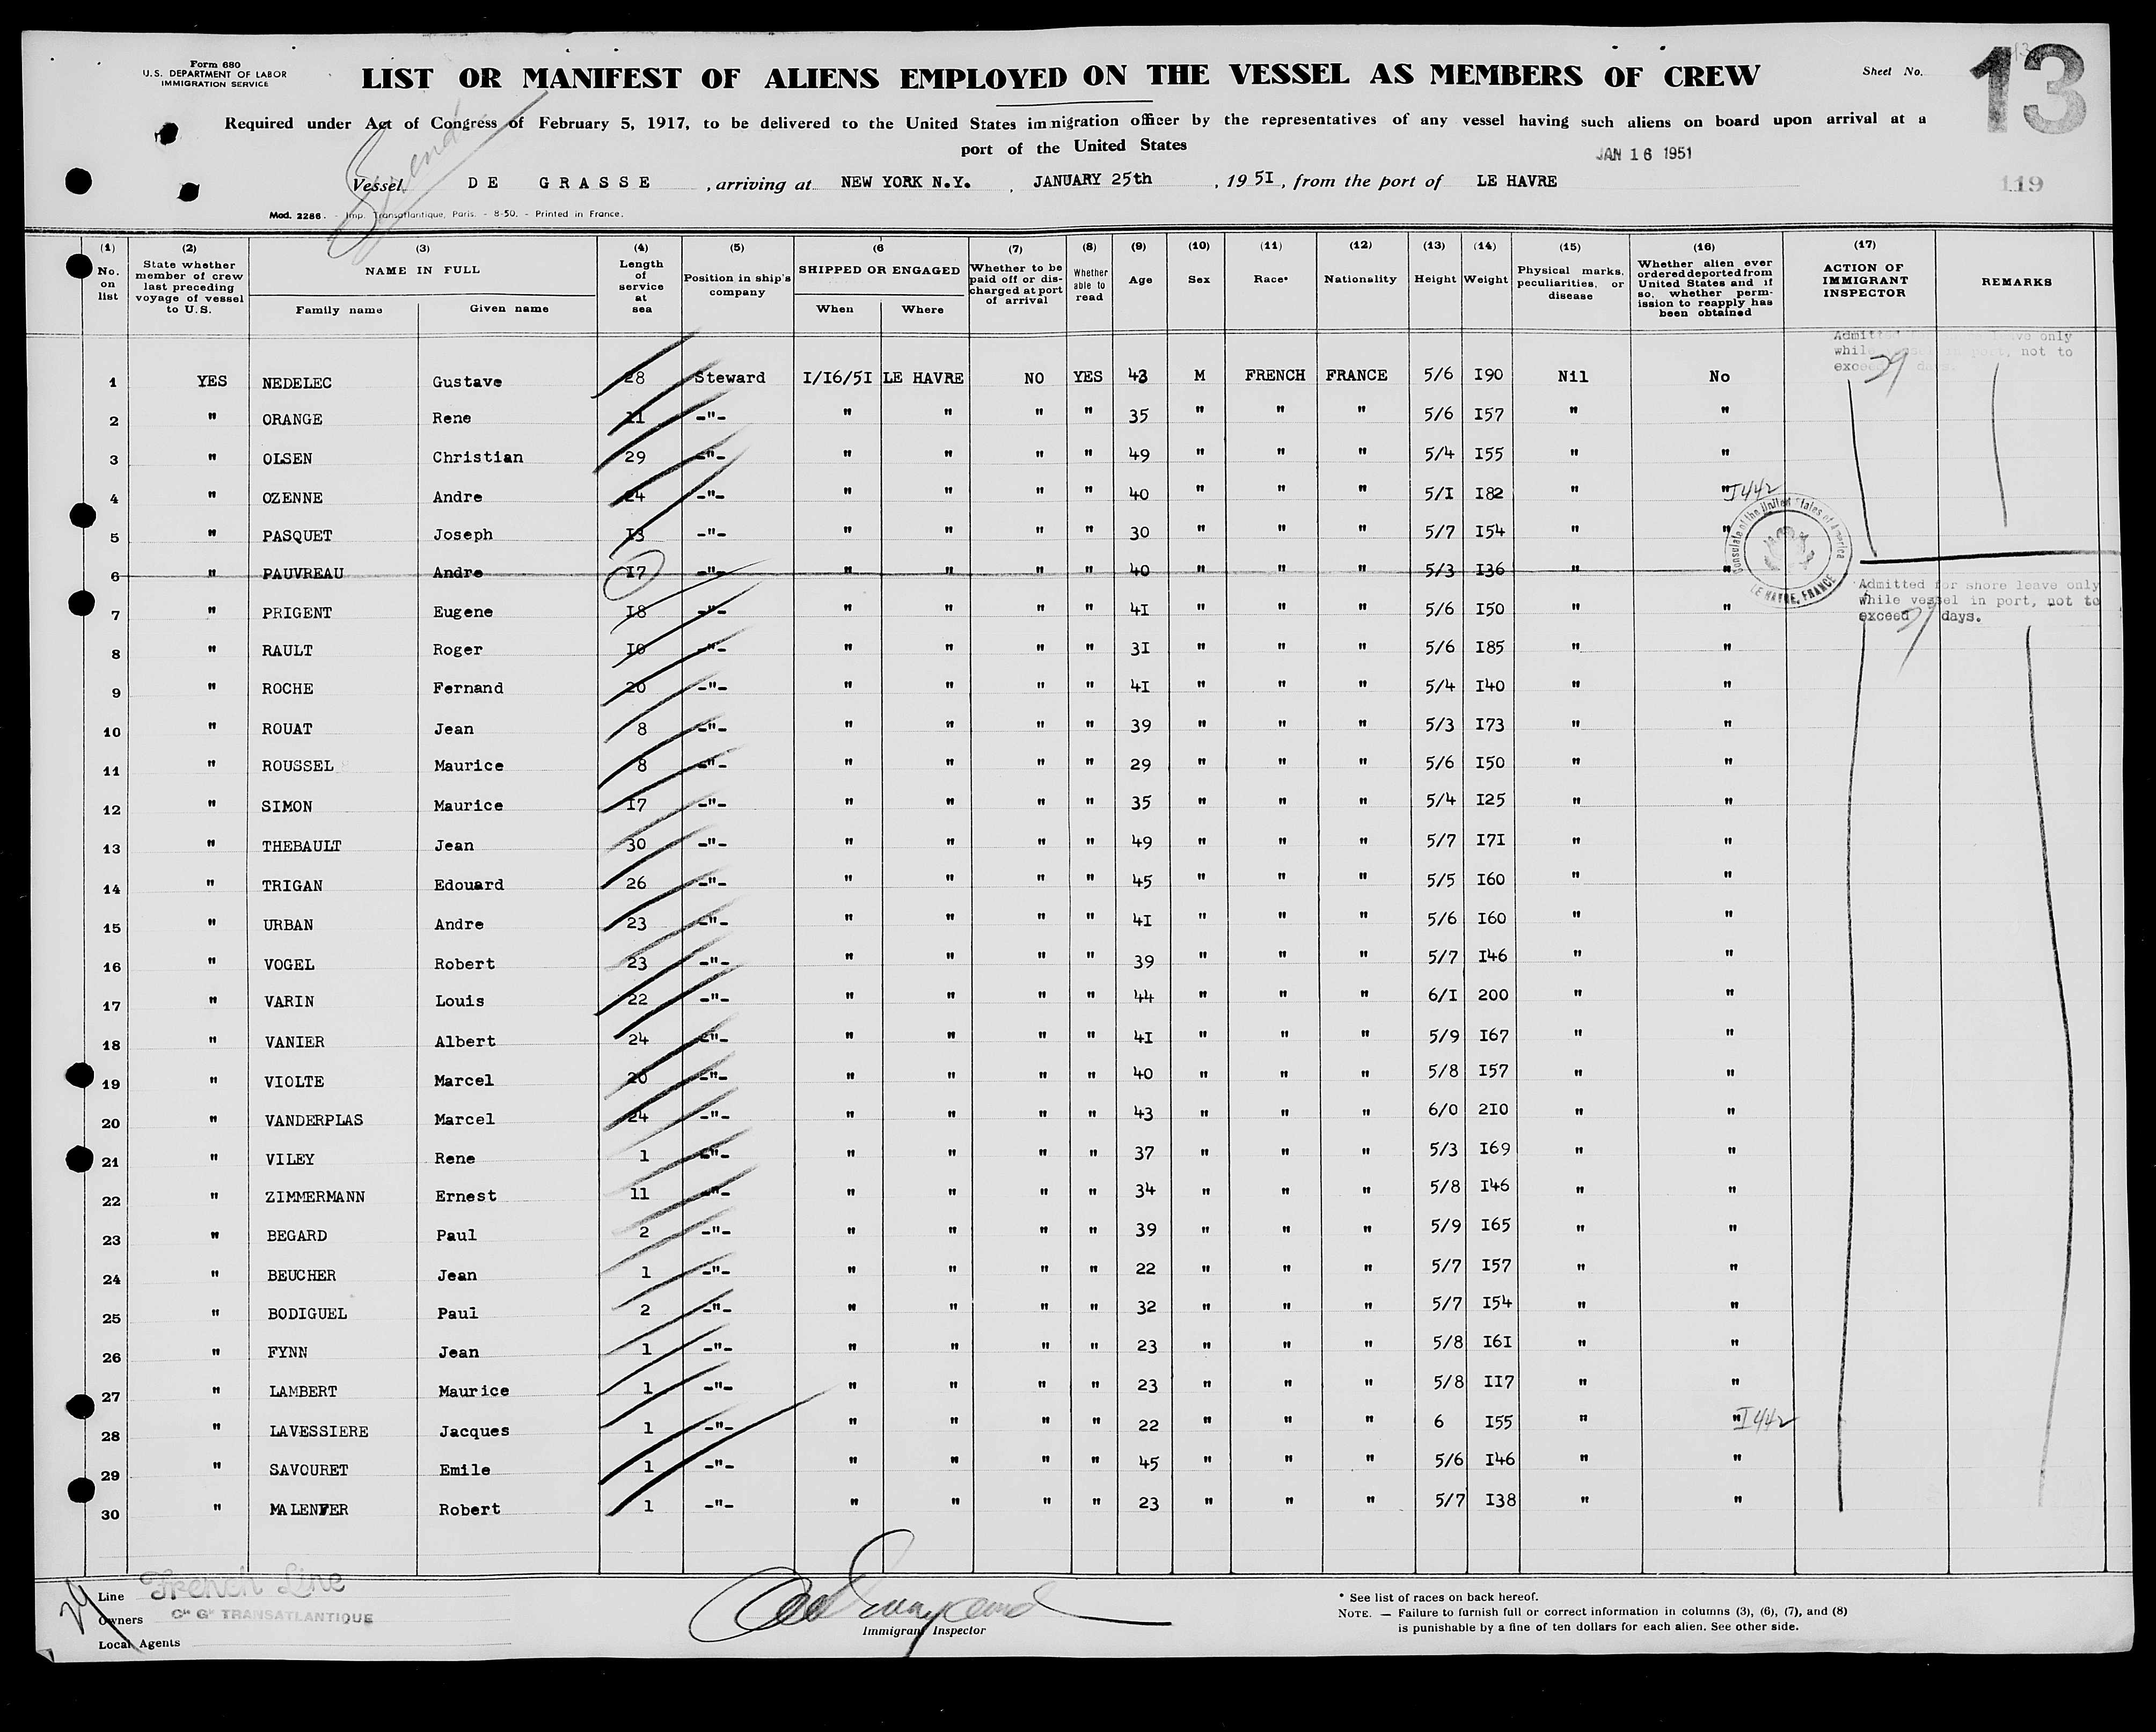 Form 680
U.S. DEPARTMENT OF LABOR
IMMIGRATION SERVICE
LIST OR MANIFEST OF ALIENS EMPLOYED ON THE VESSEL AS MEMBERS OF CREW
Sheet No. 13
Required under Act of Congress of February 5, 1917, to be delivered to the United States immigration officer by the representatives of any vessel having such aliens on board upon arrival at a
port of the United States
JAN 16 1951
Vessel DE GRASSE , arriving at NEW YORK N.Y. , JANUARY 25th , 19 5I , from the port of LE HAVRE
119
Mod. 2286. - Imp. Transatlantique, Paris. - 8-50. - Printed in France.
(1) (2) (3) (4) (5) (6 (7) (8) (9) (10) (11) (12) (13) (14) (15) (16) (17)
No. on list
State whether member of crew last preceding voyage of vessel to U.S.
NAME IN FULL
Family name Given name
Length of service at sea
Position in ship's company
SHIPPED OR ENGAGED
When Where
Whether to be paid off or discharged at port of arrival
Whether able to read
Age Sex Race* Nationality Height Weight
Physical marks, peculiarities, or disease
Whether alien ever ordered deported from United States and if so, whether permission to reapply has been obtained
ACTION OF IMMIGRANT INSPECTOR
REMARKS
1 YES NEDELEC Gustave 28 Steward I/I6/5I LE HAVRE NO YES 43 M FRENCH FRANCE 5/6 I90 Nil No
2 " ORANGE Rene 11 -"- " " " " 35 " " " 5/6 I57 " "
3 " OLSEN Christian 29 -"- " " " " 49 " " " 5/4 I55 " "
4 " OZENNE Andre 24 -"- " " " " 40 " " " 5/I I82 " " I442
5 " PASQUET Joseph I3 -"- " " " " 30 " " " 5/7 I54 " "
6 " PAUVREAU Andre I7 -"- " " " " 40 " " " 5/3 I36 " "
Consulate of the United States of America
LE HAVRE, FRANCE
Admitted for shore leave only
while vessel in port, not to
exceed 29 days.
7 " PRIGENT Eugene I8 -"- " " " " 4I " " " 5/6 I50 " "
8 " RAULT Roger I0 -"- " " " " 3I " " " 5/6 I85 " "
9 " ROCHE Fernand 20 -"- " " " " 4I " " " 5/4 I40 " "
10 " ROUAT Jean 8 -"- " " " " 39 " " " 5/3 I73 " "
11 " ROUSSEL Maurice 8 -"- " " " " 29 " " " 5/6 I50 " "
12 " SIMON Maurice I7 -"- " " " " 35 " " " 5/4 I25 " "
13 " THEBAULT Jean 30 -"- " " " " 49 " " " 5/7 I7I " "
14 " TRIGAN Edouard 26 -"- " " " " 45 " " " 5/5 I60 " "
15 " URBAN Andre 23 -"- " " " " 4I " " " 5/6 I60 " "
16 " VOGEL Robert 23 -"- " " " " 39 " " " 5/7 I46 " "
17 " VARIN Louis 22 -"- " " " " 44 " " " 6/I 200 " "
18 " VANIER Albert 24 -"- " " " " 4I " " " 5/9 I67 " "
19 " VIOLTE Marcel 20 -"- " " " " 40 " " " 5/8 I57 " "
20 " VANDERPLAS Marcel 24 -"- " " " " 43 " " " 6/0 2I0 " "
21 " VILEY Rene 1 -"- " " " " 37 " " " 5/3 I69 " "
22 " ZIMMERMANN Ernest 11 -"- " " " " 34 " " " 5/8 I46 " "
23 " BEGARD Paul 2 -"- " " " " 39 " " " 5/9 I65 " "
24 " BEUCHER Jean 1 -"- " " " " 22 " " " 5/7 I57 " "
25 " BODIGUEL Paul 2 -"- " " " " 32 " " " 5/7 I54 " "
26 " FYNN Jean 1 -"- " " " " 23 " " " 5/8 I6I " "
27 " LAMBERT Maurice 1 -"- " " " " 23 " " " 5/8 II7 " "
28 " LAVESSIERE Jacques 1 -"- " " " " 22 " " " 6 I55 " " I442
29 " SAVOURET Emile 1 -"- " " " " 45 " " " 5/6 I46 " "
30 " MALENFER Robert 1 -"- " " " " 23 " " " 5/7 I38 " "
29
Line French Line
Owners Cie Gle TRANSATLANTIQUE
Local Agents
Immigrant Inspector
* See list of races on back hereof.
NOTE. — Failure to furnish full or correct information in columns (3), (6), (7), and (8)
is punishable by a fine of ten dollars for each alien. See other side.